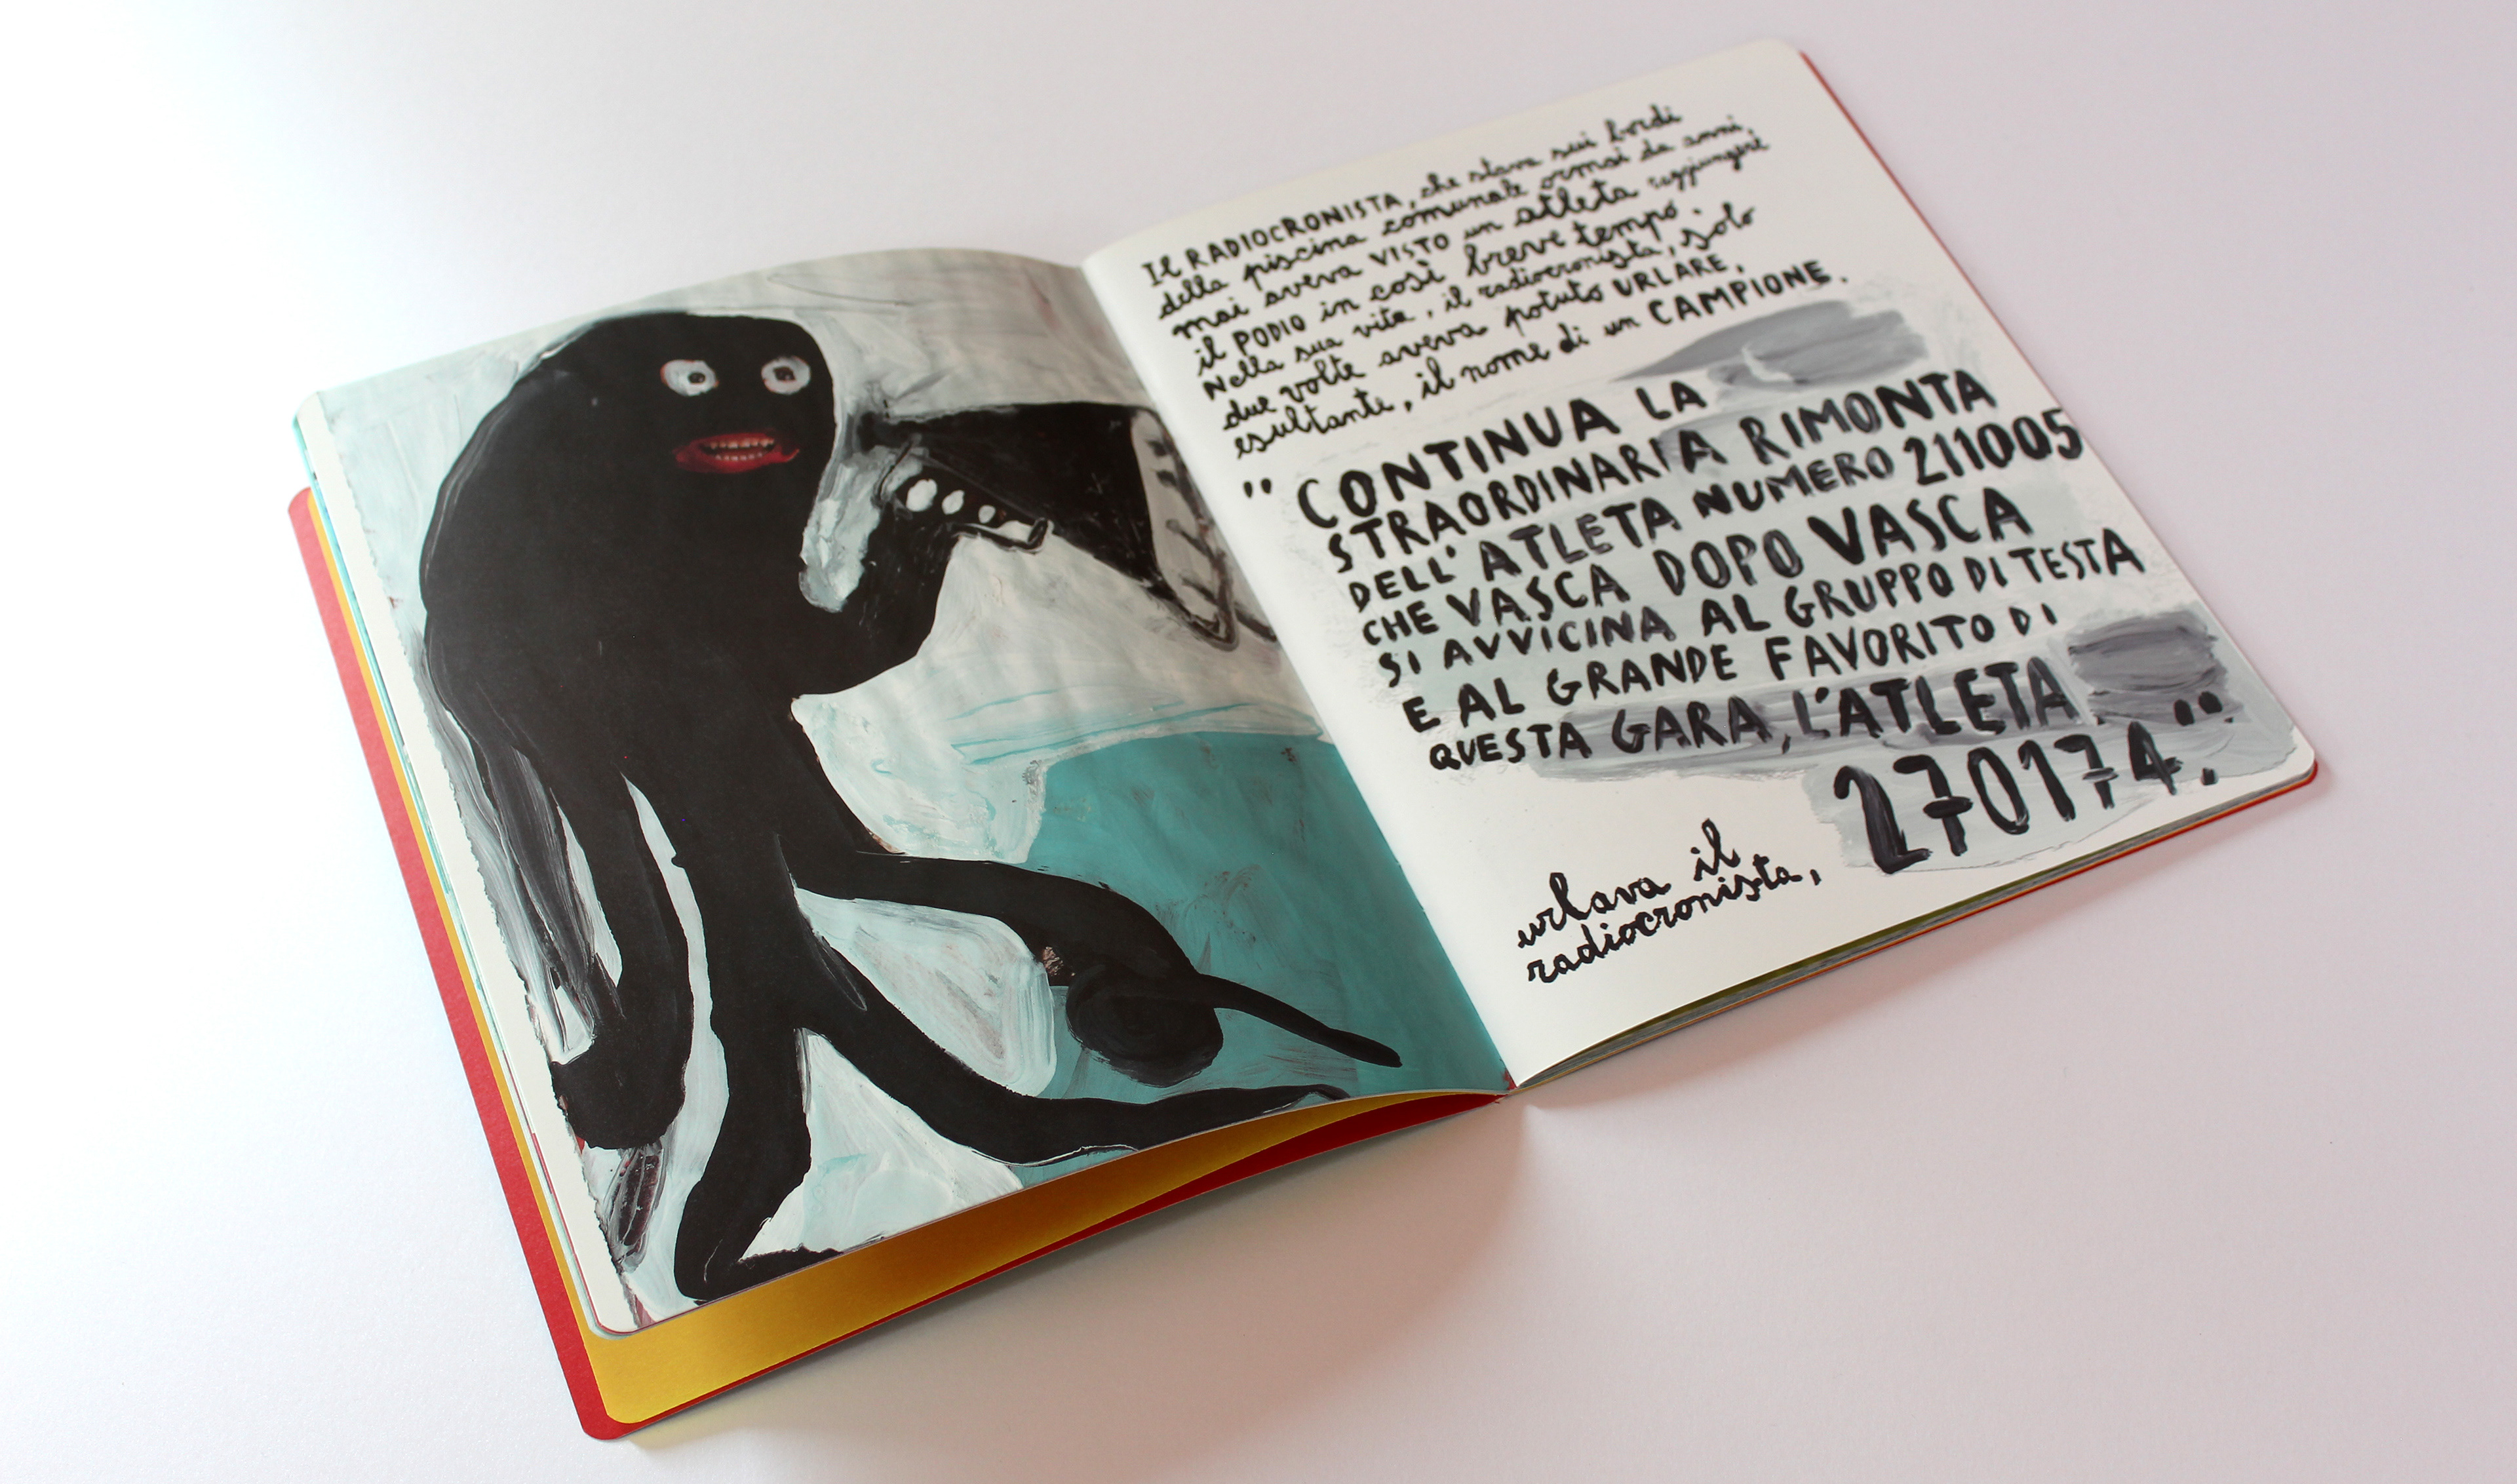 Il RADIOCRONISTA, che stava sui bordi
della piscina comunale ormai da anni,
mai aveva VISTO un atleta raggiungere
il PODIO in così breve tempo.
Nella sua vita, il radiocronista, solo
due volte aveva potuto URLARE,
esultante, il nome di un CAMPIONE.
" CONTINUA LA
STRAORDINARIA RIMONTA
DELL'ATLETA NUMERO 211005
CHE VASCA DOPO VASCA
SI AVVICINA AL GRUPPO DI TESTA
E AL GRANDE FAVORITO DI
QUESTA GARA, L'ATLETA
270174."
urlava il
radiocronista,